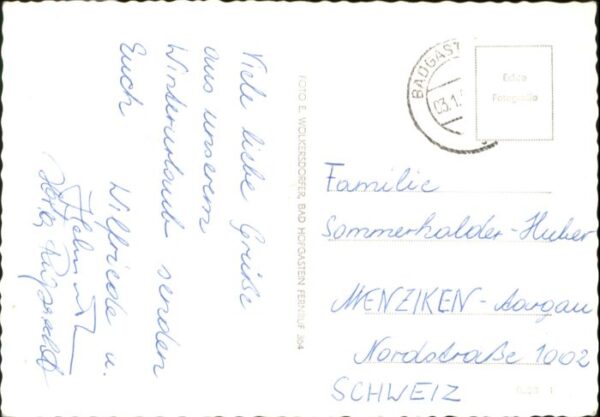 Viele liebe Grüße
aus unserem
Winterurlaub senden
Euch
Wilfriede u.
Helmut
FOTO E. WOLKERSDORFER, BAD HOFGASTEIN FERNRUF 364
BADGAST
03.1.
Edica
Fotografia
Familie
Sommerhalder-Huber
MENZIKEN-Aargau
Nordstraße 1002
SCHWEIZ